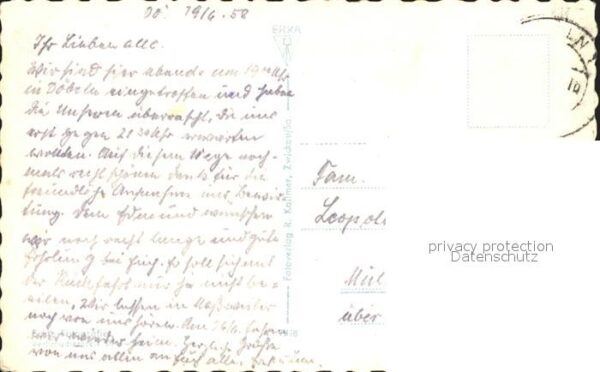 Dö. 19/6.58
Ihr Lieben alle.
Wir sind hier abends um 19 Uhr
in Döbeln eingetroffen und haben
die Unseren überrascht, die uns
erst gegen 21 30 Uhr erwarten
wollten. Auf diesem Wege noch-
mals recht schönen Dank für die
freundliche Aufnahme und Bewir-
tung. Dem und wünschen
wir noch recht lange und gute
Erholung bei Euch. Er soll sich mit
der Rückfahrt nur ja nicht be-
eilen. Wir lassen in
noch von uns hören. Am 26/6. fahren
wir wieder heim. Herzliche Grüße
von uns allen an Euch alle.
EHKA
Fotoverlag R. Kallmer, Zwickau/Sa.
Fam.
Leopold
Mül
über
privacy protection
Datenschutz